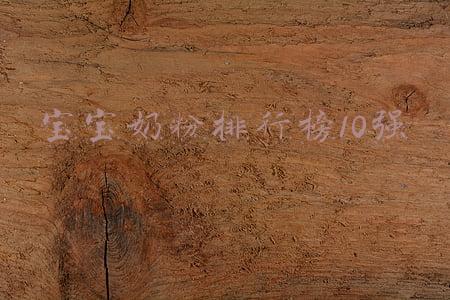 宝宝奶粉排行榜10强